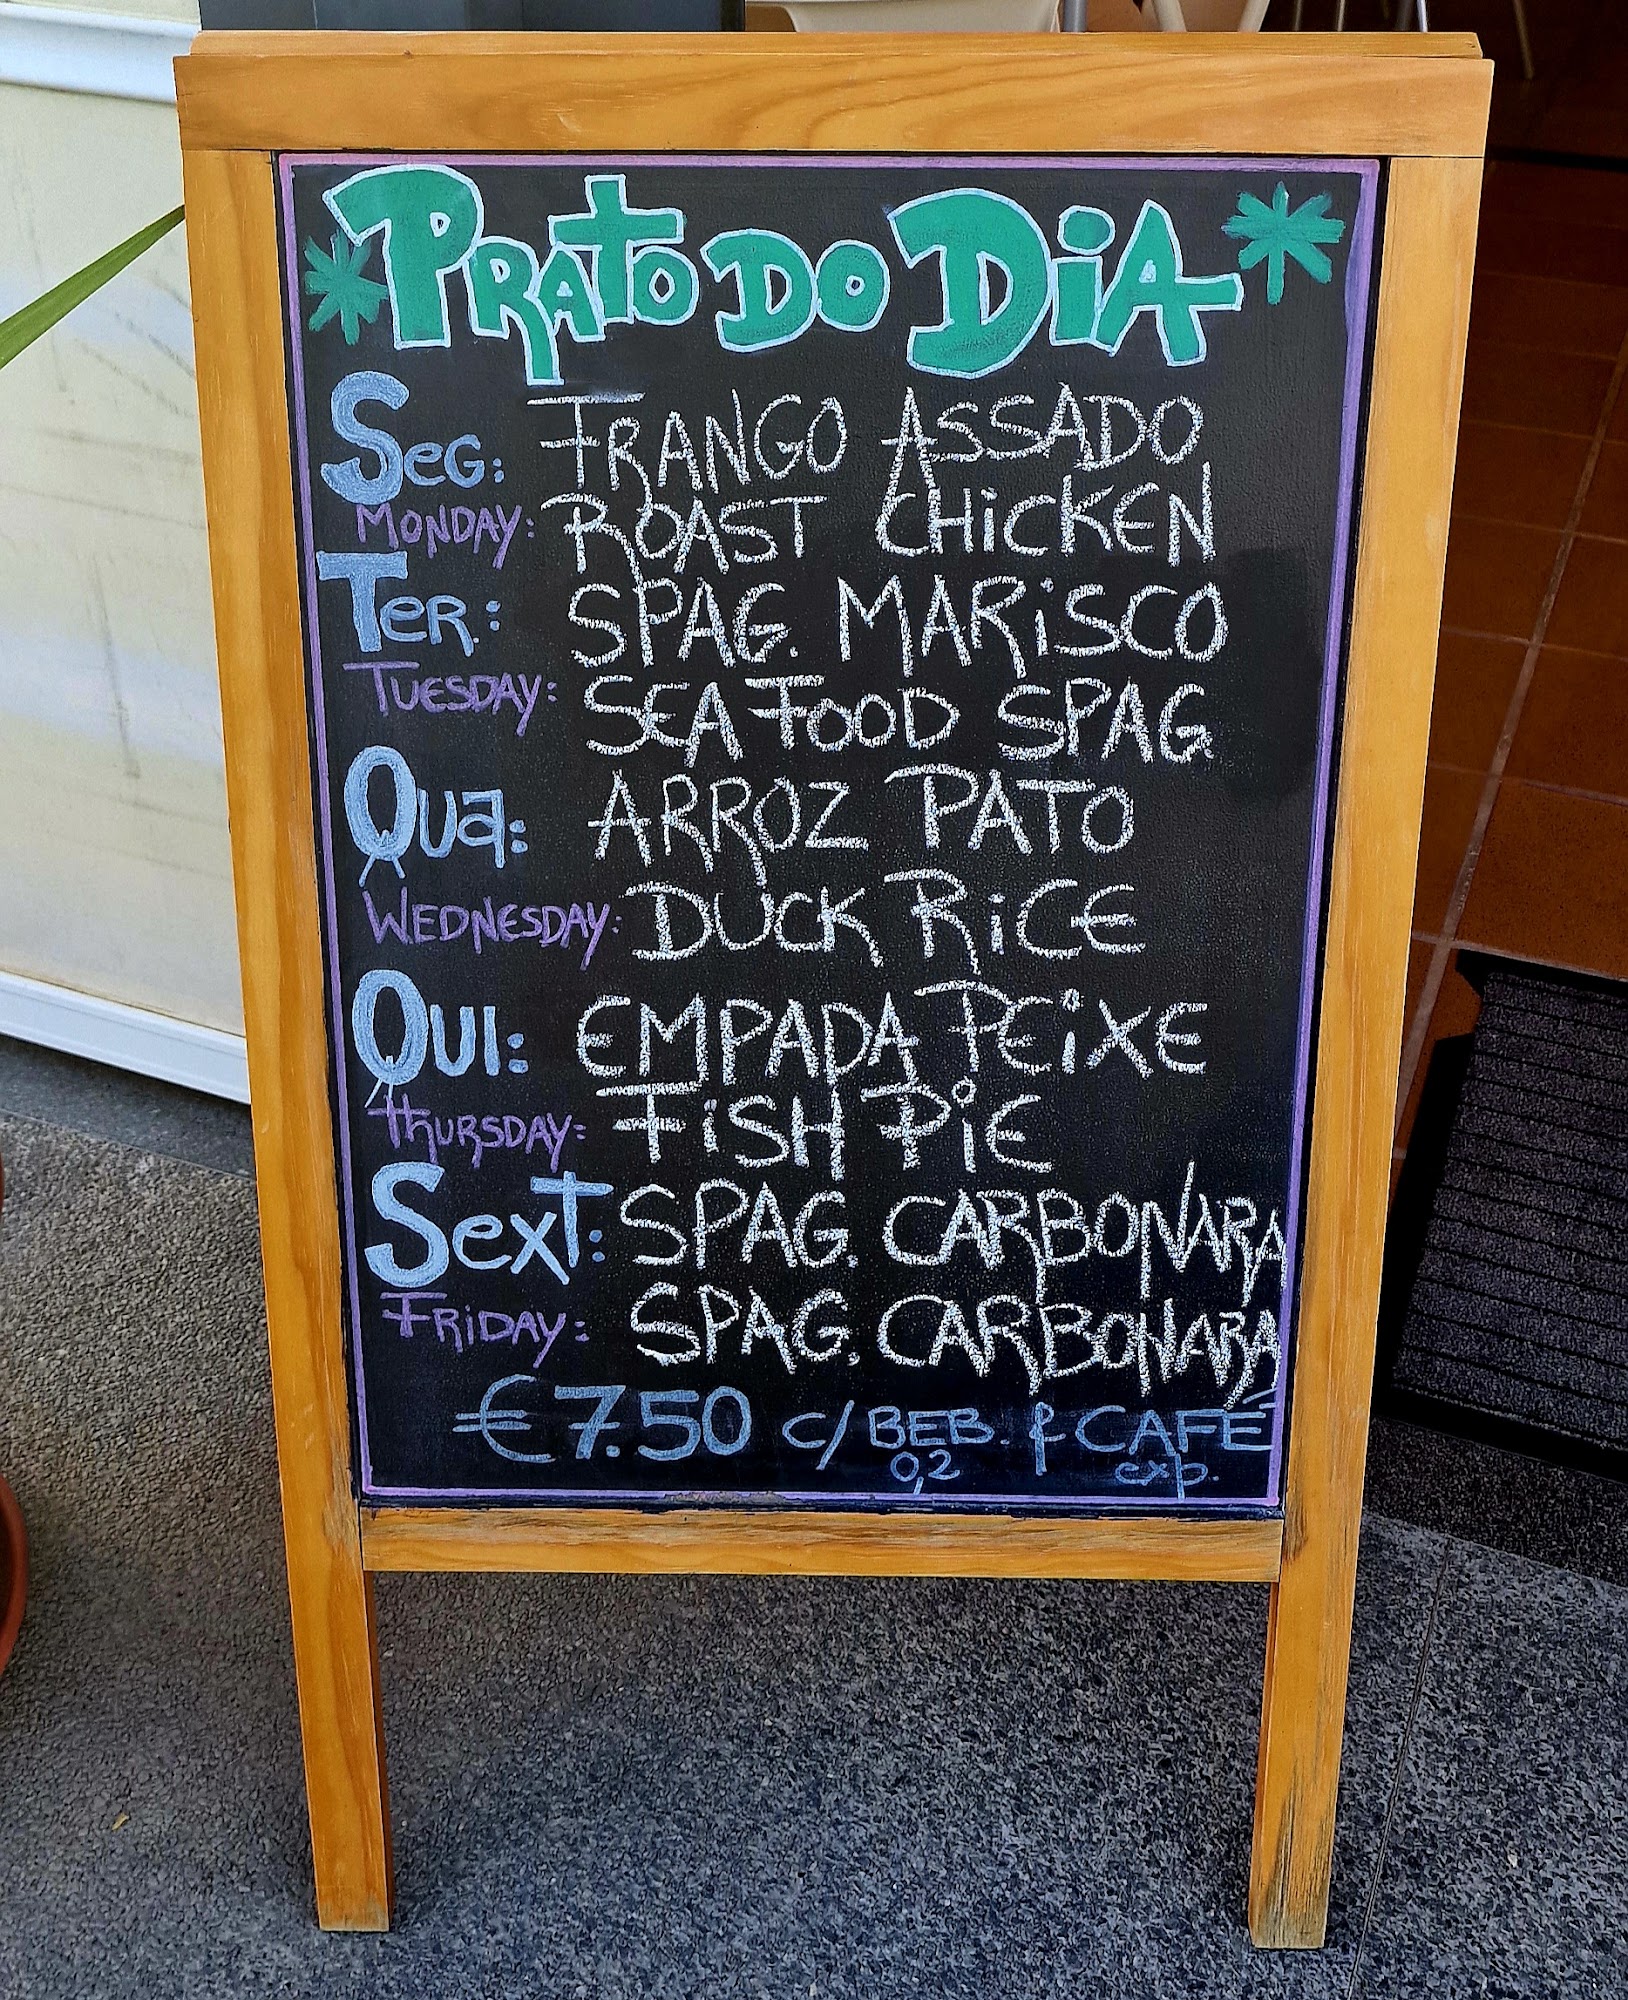 PRATO DO DIA
SEG: FRANGO ASSADO
MONDAY: ROAST CHICKEN
TER.: SPAG. MARISCO
TUESDAY: SEA FOOD SPAG.
QUA: ARROZ PATO
WEDNESDAY: DUCK RICE
QUI: EMPADA PEIXE
THURSDAY: FISH PIE
SEXT: SPAG. CARBONARA
FRIDAY: SPAG. CARBONARA
€7.50 C/ BEB. & CAFÉ
0,2 exp.